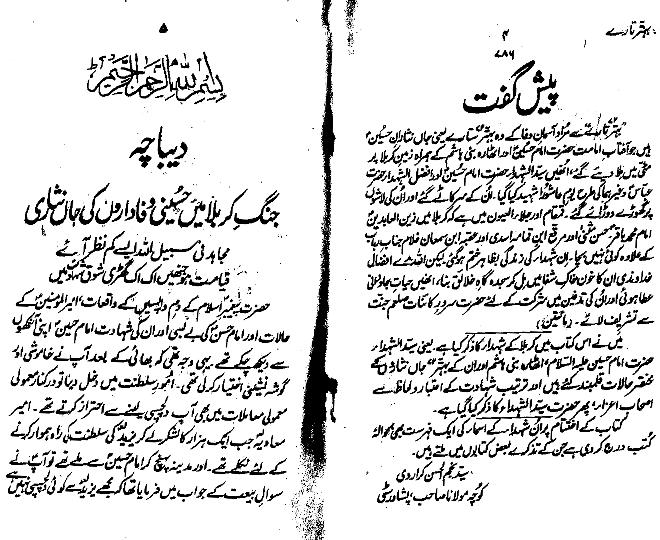 بہتر تارے
۴
۷۸۶
پیش گفت
"بہتر تارے" سے مراد آسمان وفا کے وہ بہتر ستارے یعنی جاں نثاران حسین
ہیں جو آفتاب امامت حضرت امام حسین اور اٹھارہ بنی ہاشم کے ہمراہ زمین کربلا پر
عباس وغیرہما کی طرح یوم عاشورا شہید کیا گیا۔ ان کے سر کاٹے گئے اور ان کی لاشوں
پر گھوڑے دوڑائے گئے۔
کے علاوہ کوئی نہیں بچا۔ ان شہداء کی زندگی بظاہر ختم ہو گئی لیکن اللہ رے افضال
خداوندی ان کا خون خاک شفا میں مل کر سجدہ گاہ خلائق بنا، انھیں حیات جاودانی
عطا ہوئی اور ان کی تدفین میں شرکت کے لئے حضرت سرور کائنات صلعم جنت
سے تشریف لائے۔
میں نے اس کتاب میں کربلا کے شہداء کا ذکر کیا ہے۔ یعنی سید الشہداء
حضرت امام حسین علیہ السلام، اٹھارہ بنی ہاشم اور ان کے بہتر جاں نثاروں کے
مختصر حالات قلمبند کئے ہیں اور ترتیب شہادت کے اعتبار و لحاظ سے
اصحاب، اعزاء، پھر حضرت سید الشہداء کا ذکر کیا گیا ہے۔
کتاب کے اختتام پر ان شہداء کے اسماء کی ایک فہرست بھی بحوالہ
کتب درج کر دی ہے جن کے تذکرے بعض کتابوں میں ملتے ہیں۔
سید نجم الحسن کراروی
کوچہ مولانا صاحب، پشاور سٹی
۵
بسم اللہ الرحمن الرحیم
دیباچہ
جنگ کربلا میں حسینی وفاداروں کی جاں نثاری
مجاہد فی سبیل اللہ ایسے کم نظر آئے
قیامت ہو جنھیں اک اک گھڑی شوق شہادت میں
حضرت پیغمبر اسلام کے دم واپسیں کے واقعات، امیر المومنین کے
حالات اور امام حسن کی بے بسی اور ان کی شہادت امام حسین اپنی آنکھوں
سے دیکھ چکے تھے۔ یہی وجہ تھی کہ بھائی کے بعد آپ نے خاموشی اور
گوشہ نشینی اختیار کر لی تھی۔ امور سلطنت میں دخل دینا تو درکنار معمولی
معمولی معاملات میں بھی آپ دلچسپی لینے سے احتراز کرتے تھے۔ امیر
معاویہ جب ایک ہزار کا لشکر لے کر یزید کی سلطنت کی راہ ہموار کرنے
کے لئے نکلے تھے۔ اور مدینہ پہنچ کر امام حسین سے ملے تھے تو آپ نے
سوال بیعت کے جواب میں فرمایا تھا کہ مجھے یزید سے کوئی دلچسپی نہیں ہے